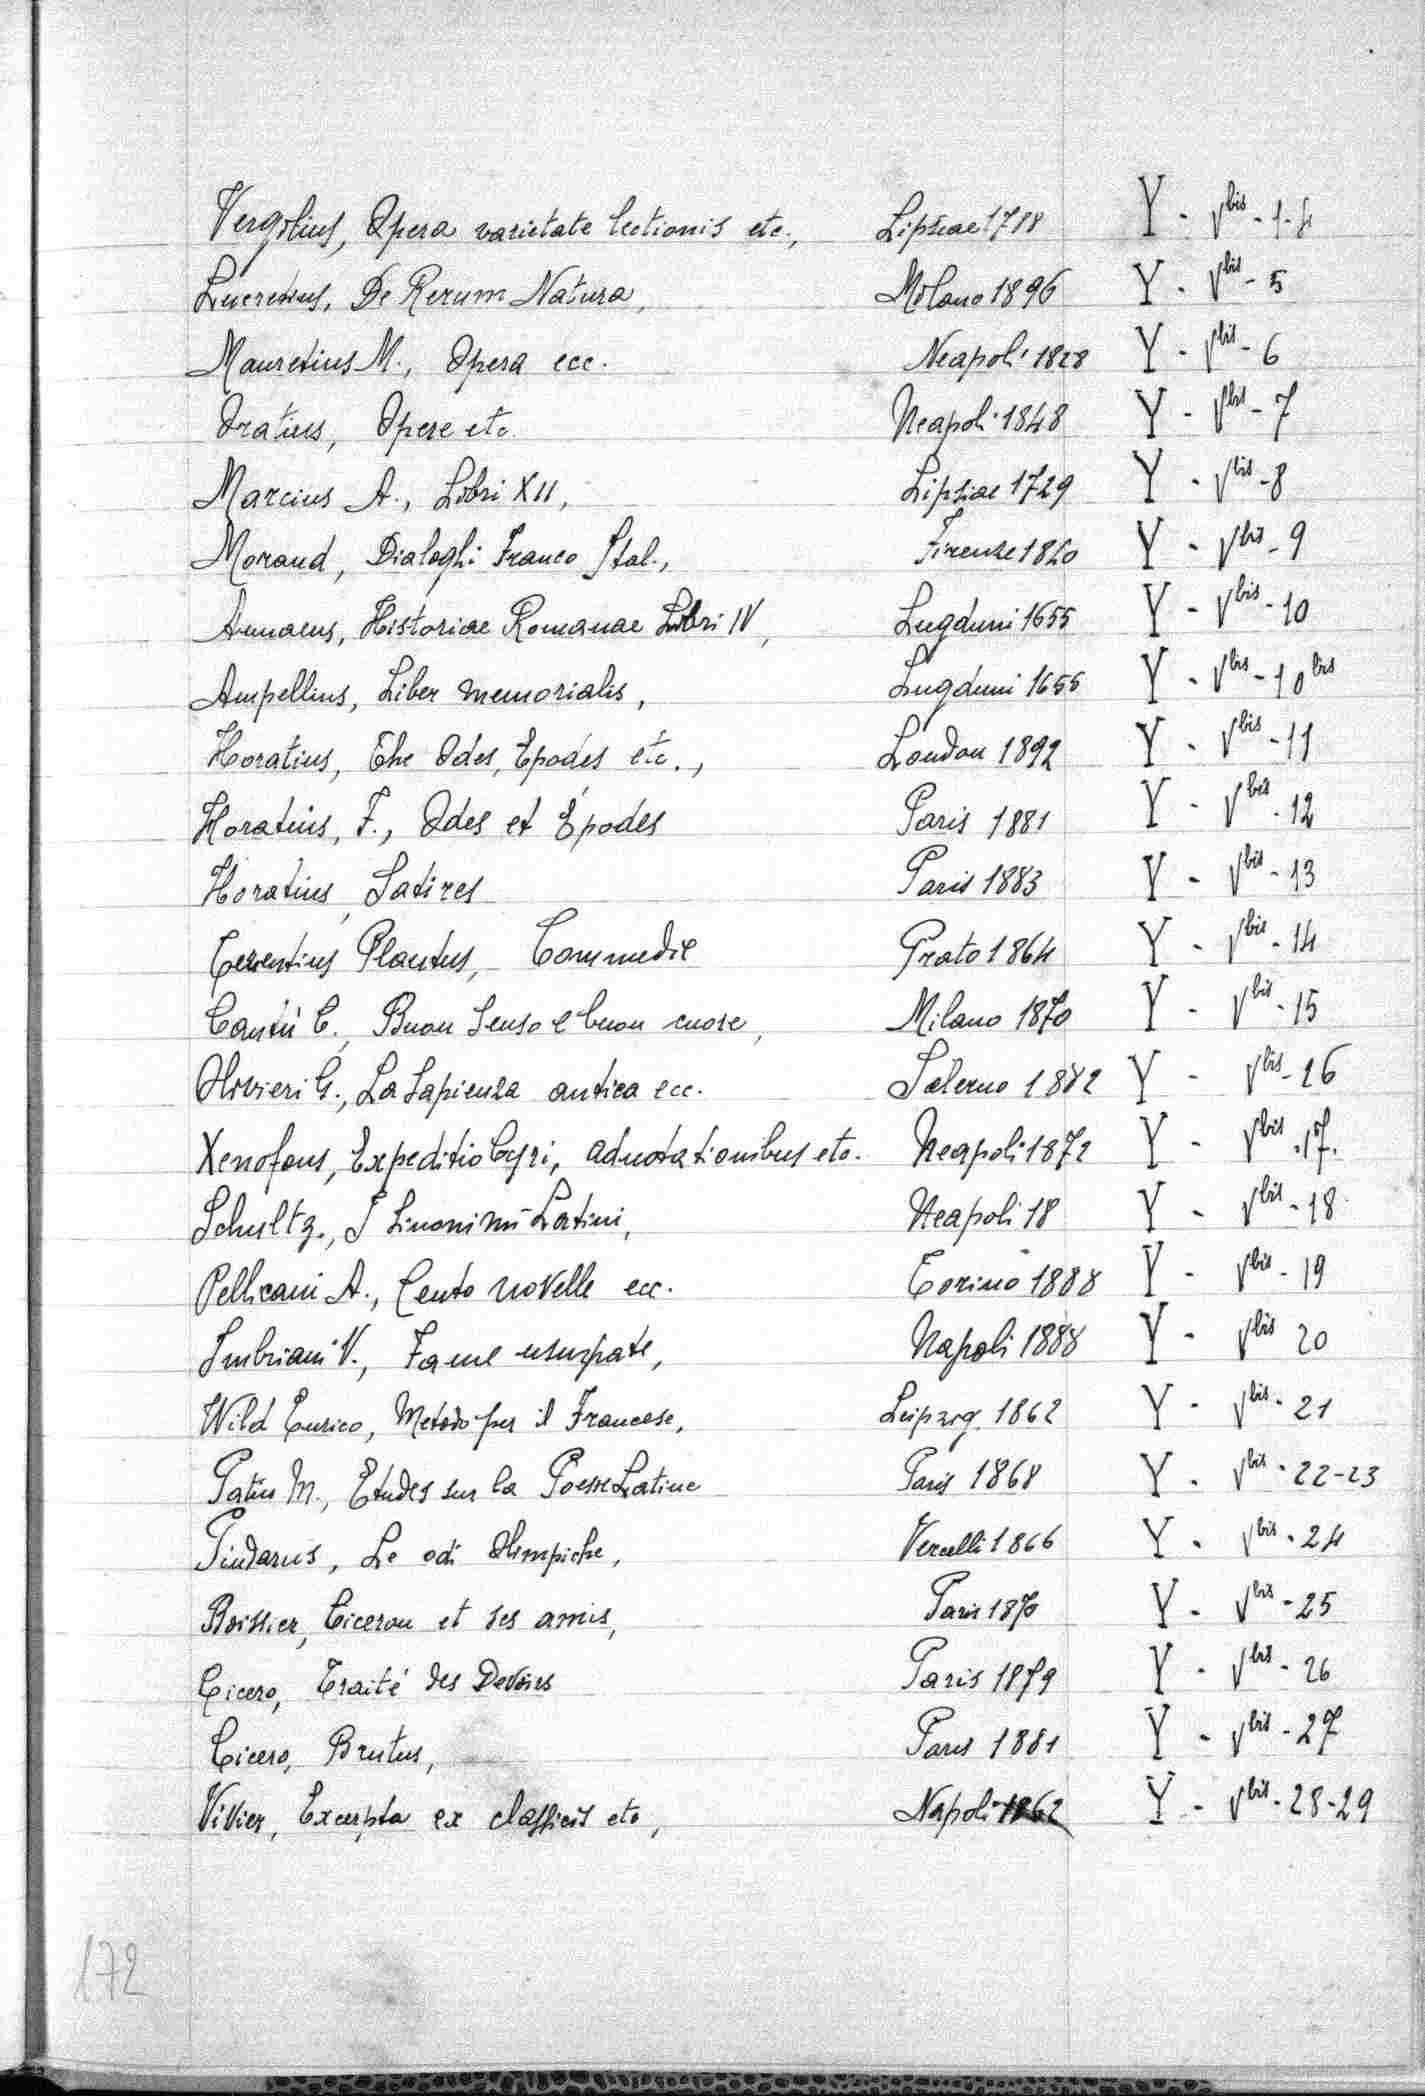 Vergilius, Opera varietate lectionis etc., Lipsiae 1788 Y - Vbis - 1-4
Lucretius, De Rerum Natura, Milano 1896 Y - Vbis - 5
Mauretius M., Opera ecc. Neapoli 1828 Y - Vbis - 6
Oratius, Opere etc. Neapoli 1848 Y - Vbis - 7
Marcius A., Libri XII, Lipsiae 1729 Y - Vbis - 8
Morand, Dialoghi Franco Ital., Firenze 1840 Y - Vbis - 9
Annaeus, Historiae Romanae Libri IV, Lugduni 1655 Y - Vbis - 10
Ampellius, Liber memorialis, Lugduni 1655 Y - Vbis - 10bis
Horatius, The Odes, Epodes etc., London 1892 Y - Vbis - 11
Horatius, F., Odes et Épodes Paris 1881 Y - Vbis - 12
Horatius, Satires Paris 1883 Y - Vbis - 13
Terentius Plautus, Commedie Prato 1864 Y - Vbis - 14
Cantù C., Buon senso e buon cuore, Milano 1870 Y - Vbis - 15
Olivieri G., La Sapienza antica ecc. Salerno 1882 Y - Vbis - 16
Xenofons, Expeditio Cyri, adnotationibus etc. Neapoli 1872 Y - Vbis - 17.
Schultz., I Sinonimi Latini, Neapoli 18 Y - Vbis - 18
Pellicani A., Cento novelle ecc. Torino 1888 Y - Vbis - 19
Imbriani V., Fame usurpate, Napoli 1888 Y - Vbis 20
Wild Enrico, Metodo per il Francese, Leipzig 1862 Y - Vbis - 21
Patin M., Etudes sur la Poesie Latine Paris 1868 Y - Vbis - 22-23
Pindarus, Le odi Olimpiche, Vercelli 1866 Y - Vbis - 24
Boissier, Ciceron et ses amis, Paris 1870 Y - Vbis - 25
Cicero, Traité des Devoirs Paris 1879 Y - Vbis - 26
Cicero, Brutus, Paris 1881 Y - Vbis - 27
Vivier, Excerpta ex classicis etc, Napoli 1862 Y - Vbis - 28-29
172